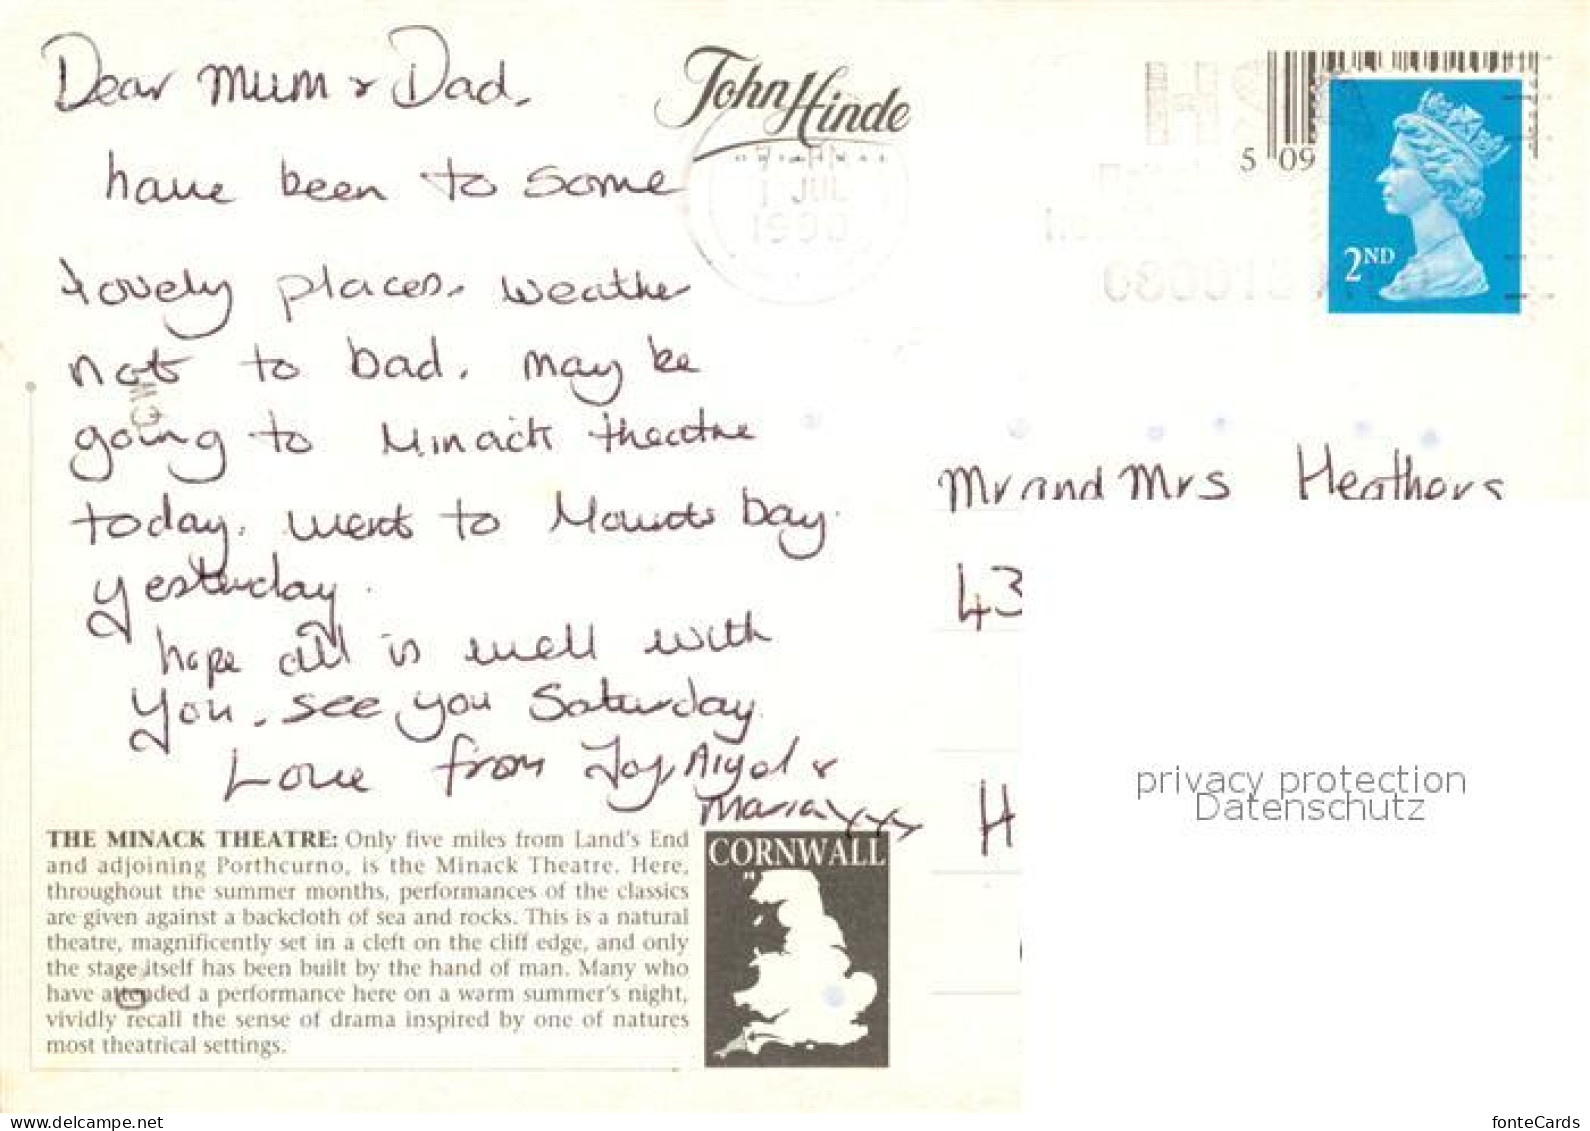 Dear Mum & Dad.
have been to some
lovely places. Weather
not to bad. May be
going to Minack theatre
today. Went to Mounts bay
yesterday.
hope all is well with
you. see you Saturday.
Love from Joy, Nigel &
Maria xxxx
John Hinde
ORIGINAL
JUL
5 09
2ND
Mr and Mrs Heathers
43
H
privacy protection
Datenschutz
THE MINACK THEATRE: Only five miles from Land's End
and adjoining Porthcurno, is the Minack Theatre. Here,
throughout the summer months, performances of the classics
are given against a backcloth of sea and rocks. This is a natural
theatre, magnificently set in a cleft on the cliff edge, and only
the stage itself has been built by the hand of man. Many who
have attended a performance here on a warm summer's night,
vividly recall the sense of drama inspired by one of natures
most theatrical settings.
CORNWALL
www.delcampe.net
fonteCards